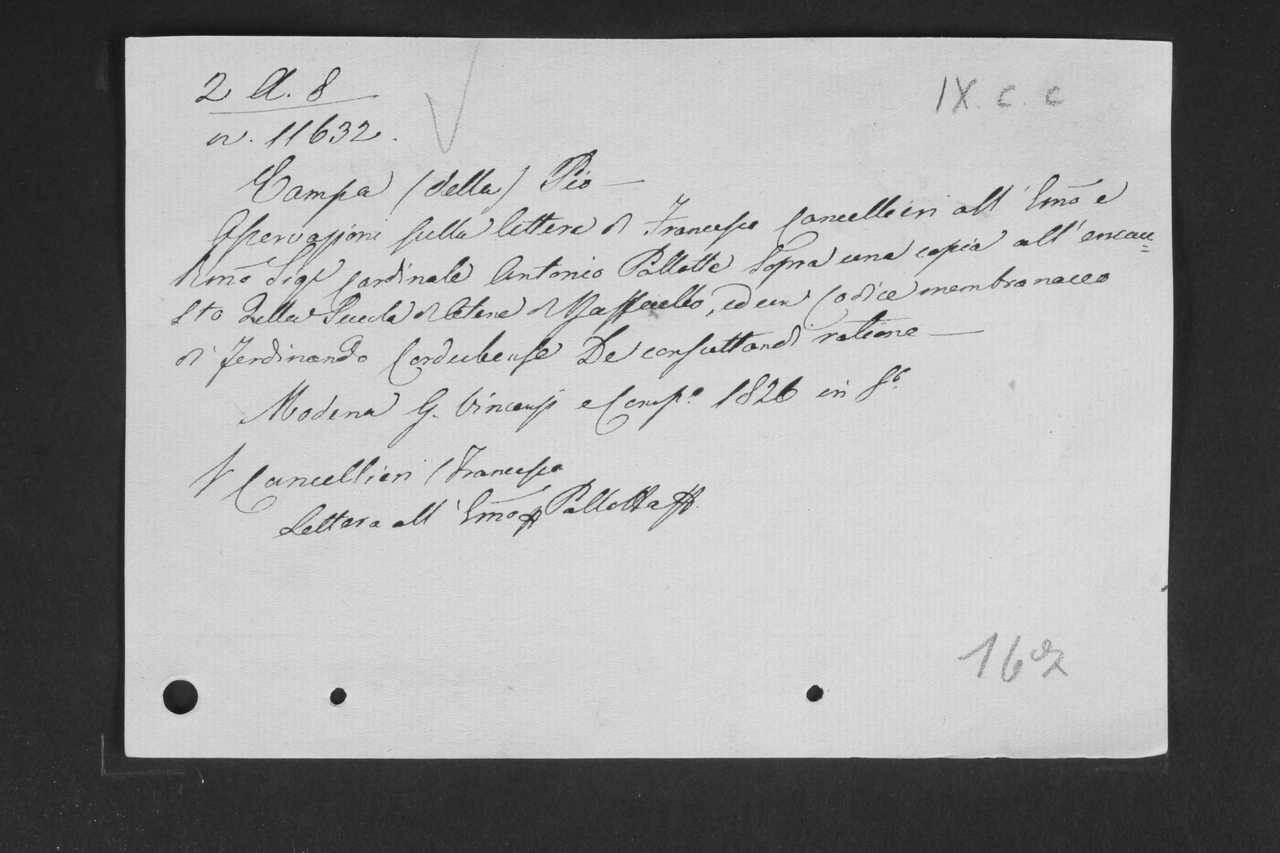 2 A. 8
IX. c. c
n. 11632.
Campa (della) Pio —
Osservazioni sulla lettera di Francesco Cancellieri all' Emo e
Rmo Sigr Cardinale Antonio Pallotta sopra una copia all' encau=
sto della Scuola di Atene di Raffaello, ed un Codice membranaceo
di Ferdinando Cordubense De consultandi ratione —
Modena G. Vincenzi e Compo 1826 in 8o
V Cancellieri (Francesco
Lettera all' Emo Pallotta
16